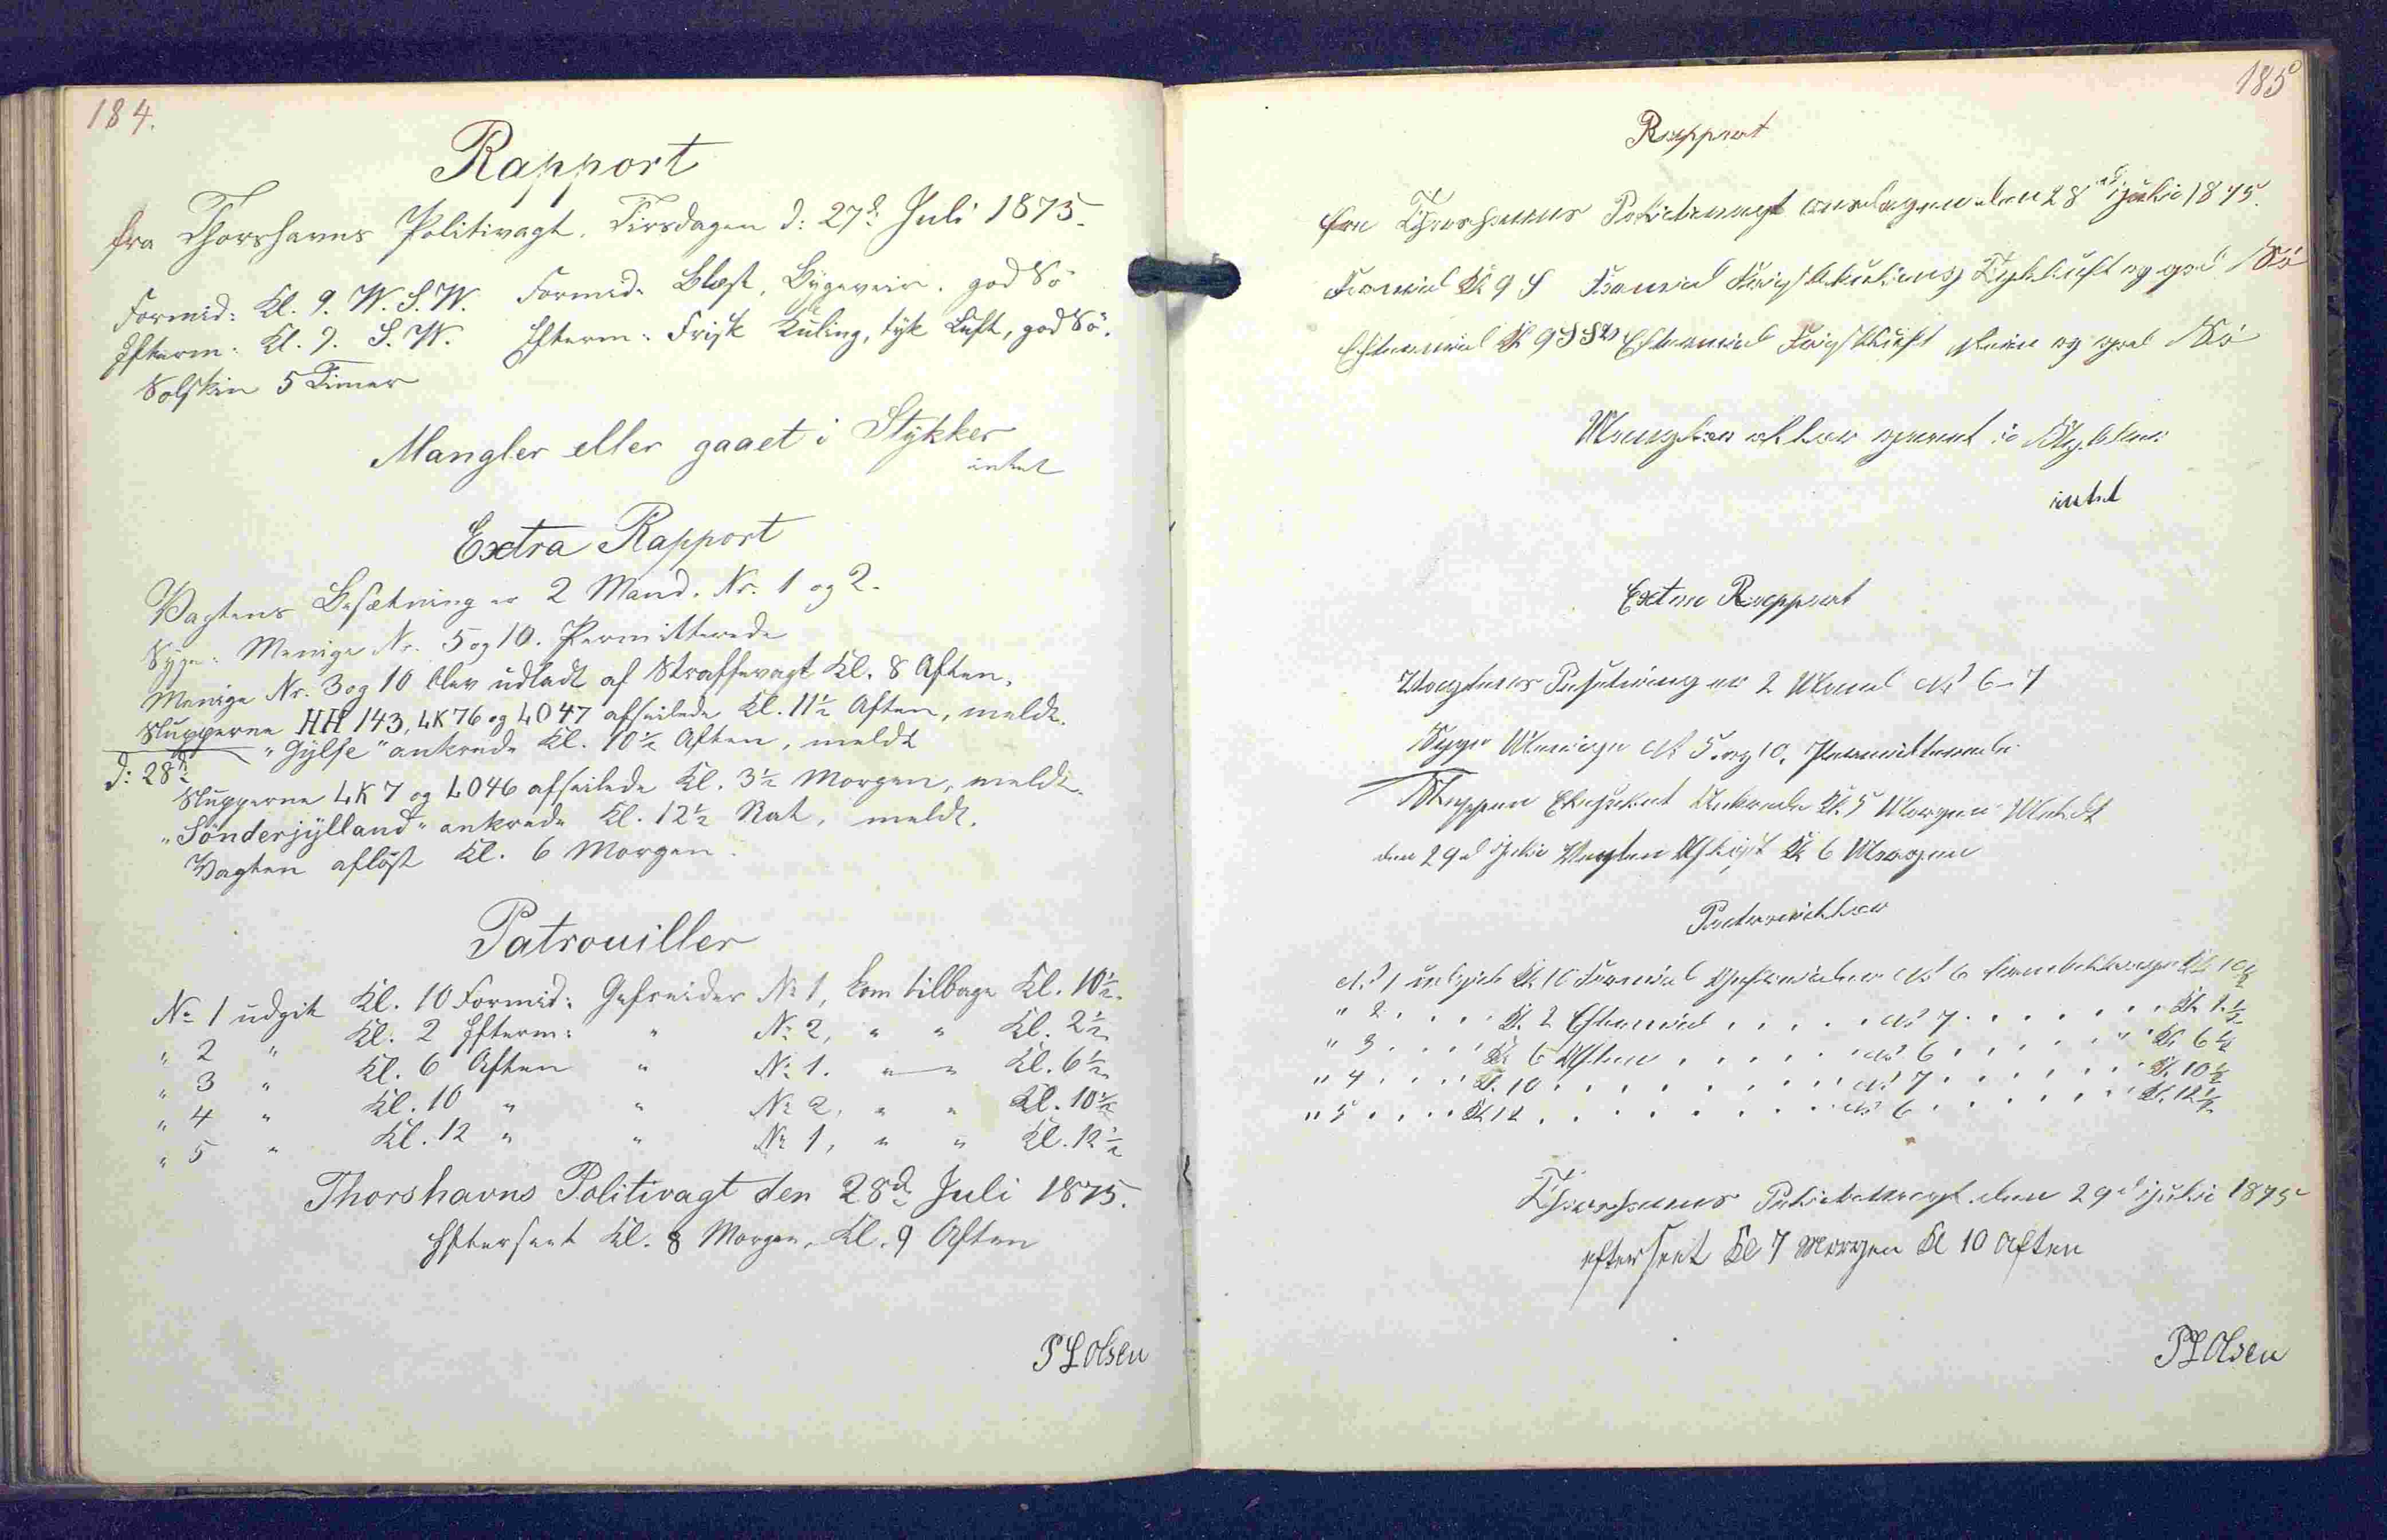 184.
Rapport
fra Thorshavns Politivagt. Tirsdagen d: 27d: Juli 1875.
Formid: Kl. 9. W. S. W. Formid. Blæst, Bygeveir. god Sö
Efterm: Kl. 9. S. W. Efterm: Frisk Kuling, tyk Luft, god Sö.
Solskin 5 Timer
Mangler eller gaaet i Stykker
intet
Extra Rapport
Vagtens Besætning er 2 Mand. Nr. 1 og 2.
Syge: Menige Nr. 5 og 10. Permitterede
Menige Nr. 3 og 10 blev udladt af Straffevagt Kl. 8 Aften.
Slupperne HH 143, LK 76 og LO 47 afseilede Kl. 11½ Aften, meldt.
"Gylfe" ankrede Kl. 10½ Aften, meldt
d: 28d:
Slupperne LK 7 og LO 46 afseilede Kl. 3½ Morgen, meldt.
"Sönderjylland" ankrede Kl. 12½ Nat, meldt.
Vagten aflöst Kl. 6 Morgen.
Patrouiller
No 1 udgik Kl. 10 Formid: Gefreider No 1, kom tilbage Kl. 10½.
" 2 " Kl. 2 Efterm: " No 2, " " Kl. 2½
" 3 " Kl. 6 Aften " No 1. " " Kl. 6½
" 4 " Kl. 10 " " No 2, " " Kl. 10½
" 5 " Kl. 12 " " No 1, " " Kl. 12½
Thorshavns Politivagt den 28d Juli 1875.
Efterseet Kl. 8 Morgen, Kl. 9 Aften
P L Olsen
185
Rapport
fra Thorshavns Politivagt onsdagen den 28d Julie 1875.
Formid Kl 9 S Formid Frisk Kuling Tyk Luft og god Sö
Eftermid Kl 9 SSW Eftermid Frisk Luft og god Sö
Mangler eller gaaet i Stykker
intet
Extra Rapport
Vagtens Besetning er 2 Mand No 6-7
Syge Menige No 5 og 10. Permitterede
Sluppen Ankrede Kl. 5 Morgen Meldt
den 29d Julie Vagten Aflöst Kl 6 Morgen
No 1 udgik Kl 10 Formid Gefreider No 6 kom tilbage Kl 10½
" 2 . . . . Kl. 2 Eftermid . . . . . No 7 . . . . . . . Kl.
" 3 . . . . Kl 6 Aften . . . . . . No 6 . . . . . . " Kl 6½
" 4 . . . . Kl. 10 . . . . . . . . . No 7 . . . . . . . Kl. 10½
" 5 . . . . Kl 12 . . . . . . . . . No 6 . . . . . . . Kl. 12½
Thorshavns Politivagt den 29d Julie 1875
efter seet Kl 7 Morgen Kl 10 Aften
P L Olsen